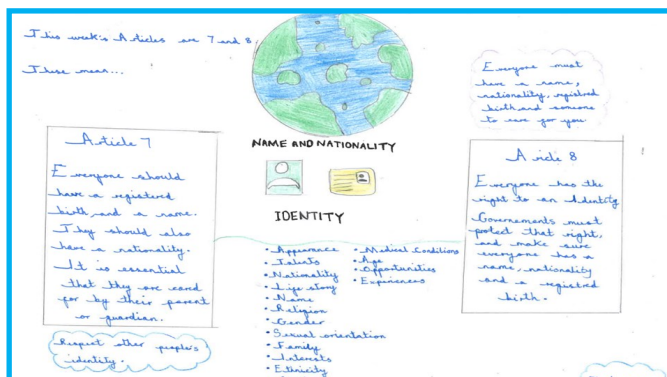 This week's Articles are 7 and 8.
These mean...
Everyone must
have a name,
nationality, registred
birth and someone
to care for you
NAME AND NATIONALITY
Article 7
Everyone should
have a registered
birth and a name.
They should also
have a nationality.
It is essential
that they are cared
for by their parent
or guardian.
Aricle 8
Everyone has the
right to an Identity
Governements must
protect that right,
and make sure
everyone has a
name, nationality
and a registred
birth.
IDENTITY
• Appearance
• Talents
• Nationality
• Life story
• Name
• Religion
• Gender
• Sexual orientation
• Family
• Interests
• Ethnicity
• Medical Conditions
• Age
• Opportunities
• Experiences
Respect other people's
identity.